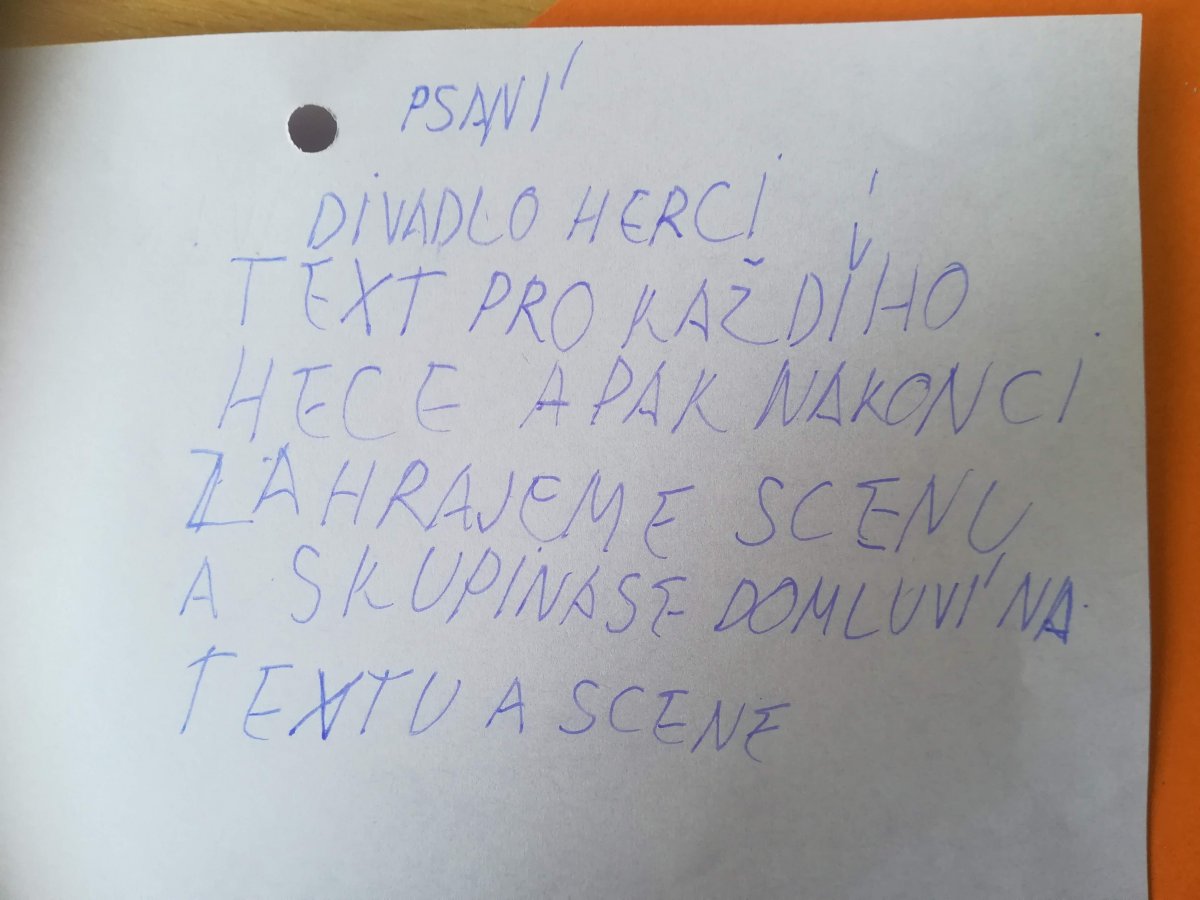 PSANÍ
DIVADLO HERCI
TEXT PRO KAŽDÍHO
HECE A PAK NAKONCI
ZAHRAJEME SCENU
A SKUPINA SE DOMLUVÍ NA
TEXTU A SCENE